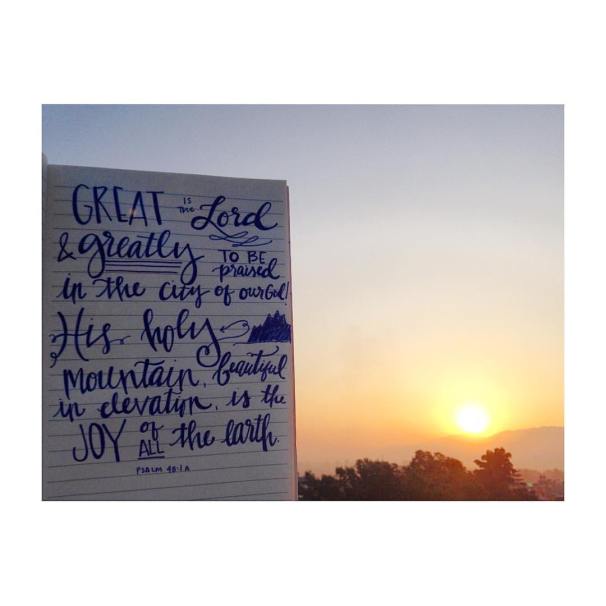 GREAT IS THE Lord
& greatly TO BE praised
in the city of our God!
His holy
mountain, beautiful
in elevation, is the
JOY of ALL the earth.
PSALM 48:1A